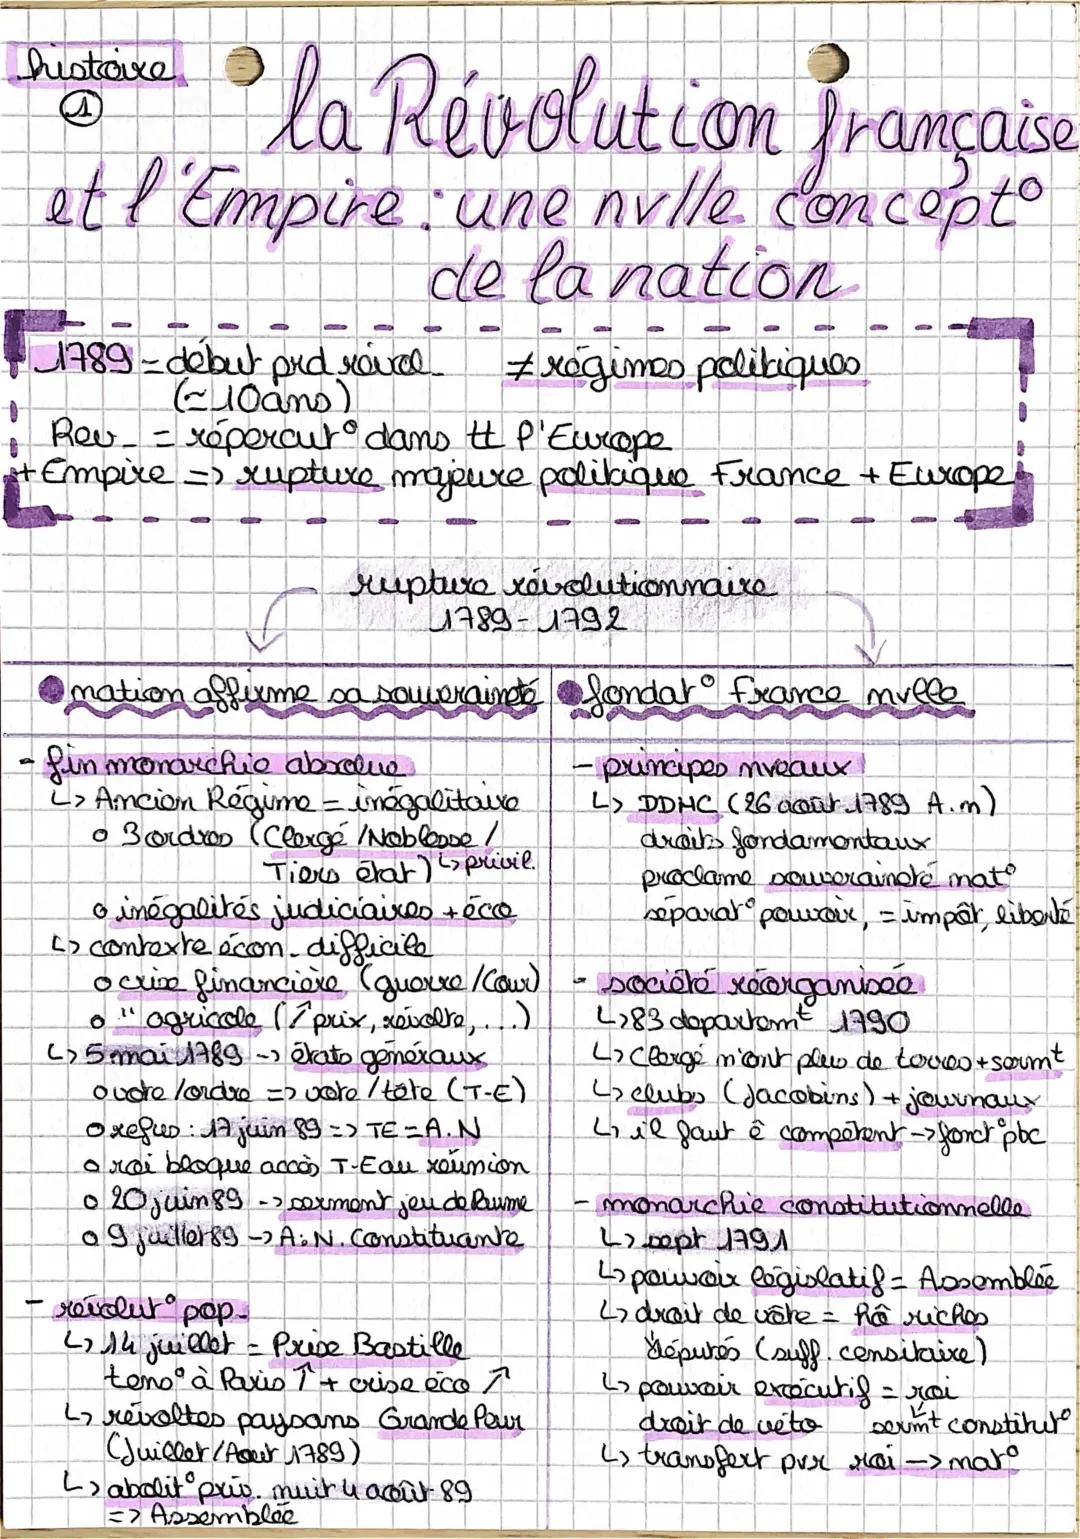 histoire
①
la Révolution française
et l'Empire : une nvlle concept°
de la nation
1789 = début prd révol. ≠ régimes politiques
(≃ 10 ans)
Rev = répercut° dans tt l'Europe
+ Empire => rupture majeure politique France + Europe
rupture révolutionnaire
1789 - 1792
nation affirme sa souveraineté
- fin monarchie absolue
↳ Ancien Régime = inégalitaire
o 3 ordres (Clergé / Noblesse /
Tiers état) ↳ privil.
o inégalités judiciaires + éco
↳ contexte écon. difficile
o crise financière (guerre / Cour)
o " agricole (↗ prix, révolte, ...)
↳ 5 mai 1789 -> états généraux
o vote / ordre => vote / tête (T-E)
o refus : 17 juin 89 => TE = A.N
o roi bloque accès T-E au réunion
o 20 juin 89 -> serment jeu de Paume
o 9 juillet 89 -> A.N. Constituante
- révolut° pop.
↳ 14 juillet = Prise Bastille
tens° à Paris ↑ + crise éco ↗
↳ révoltes paysans Grande Peur
(Juillet / Aout 1789)
↳ abolit° priv. nuit 4 août 89
=> Assemblée
fondat° France nvlle
- principes nveaux
↳ DDHC (26 août 1789 A.n)
droits fondamentaux
proclame souveraineté nat°
séparat° pouvoir, = impôt, liberté
- société réorganisée
↳ 83 departemt 1790
↳ Clergé n'ont plus de terres + sermt
↳ clubs (Jacobins) + journaux
↳ il faut ê compétent -> fonct° pbc
- monarchie constitutionnelle
↳ sept 1791
↳ pouvoir législatif = Assemblée
↳ droit de vôte = hô riches
députés (suff. censitaire)
↳ pouvoir exécutif = roi
droit de véto sermt constitut°
↳ transfert pvr roi -> nat°